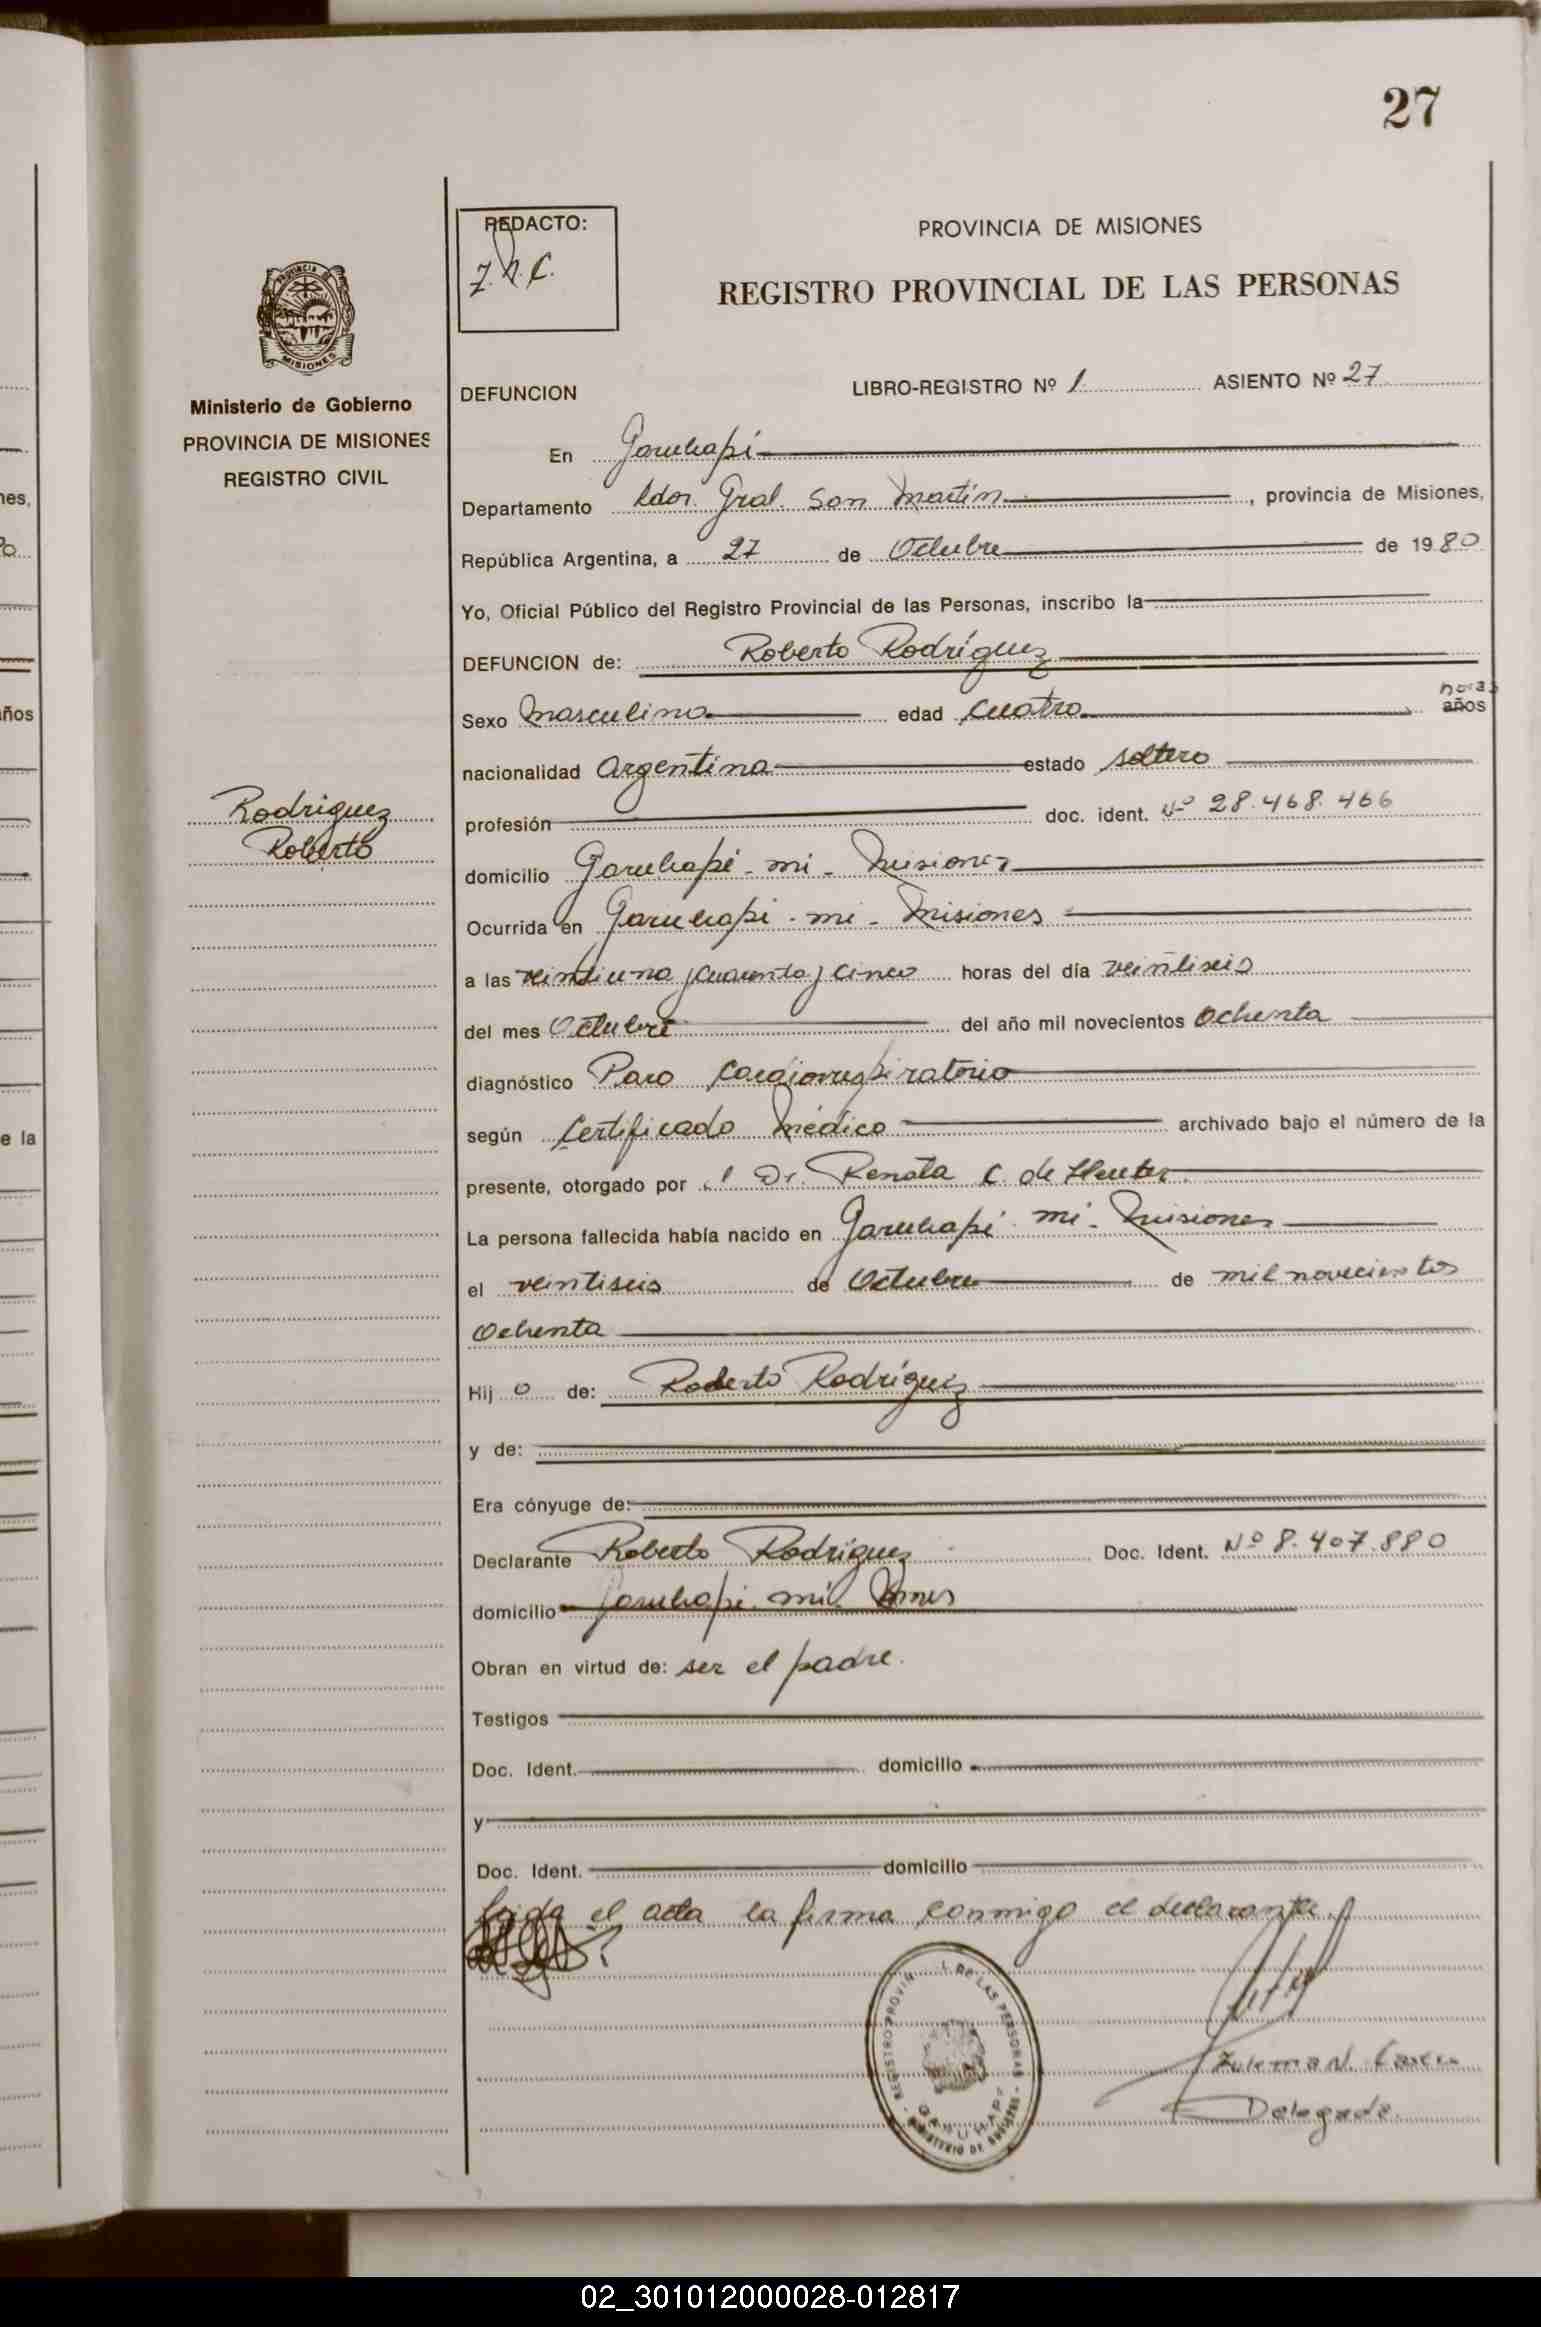 27
REDACTO:
Z. N. C.
PROVINCIA DE MISIONES
REGISTRO PROVINCIAL DE LAS PERSONAS
PROVINCIA DE
MISIONES
Ministerio de Gobierno
PROVINCIA DE MISIONES
REGISTRO CIVIL
Rodriguez
Roberto
DEFUNCION LIBRO-REGISTRO Nº 1 ASIENTO Nº 27
En Garuhapi
Departamento Ldor. Gral. San Martín, provincia de Misiones,
República Argentina, a 27 de Octubre de 1980
Yo, Oficial Público del Registro Provincial de las Personas, inscribo la
DEFUNCION de: Roberto Rodríguez
horas
Sexo masculino edad cuatro años
nacionalidad Argentina estado soltero
profesión doc. ident. Nº 28.468.466
domicilio Garuhapi - mi - Misiones
Ocurrida en Garuhapi - mi - Misiones
a las veintiuna y cuarenta y cinco horas del día veintiseis
del mes Octubre del año mil novecientos ochenta
diagnóstico Paro Cardiorrespiratorio
según Certificado Médico archivado bajo el número de la
presente, otorgado por el Dr. Renata C. de
La persona fallecida había nacido en Garuhapi - mi - Misiones
el veintiseis de Octubre de mil novecientos
ochenta
Hij o de: Roberto Rodríguez
y de:
Era cónyuge de:
Declarante Roberto Rodríguez Doc. Ident. Nº 8.407.880
domicilio Garuhapi - mi - Mnes
Obran en virtud de: ser el padre.
Testigos
Doc. Ident. domicilio
y
Doc. Ident. domicilio
Leida el acta la firma conmigo el declarante.
REGISTRO PROVIN L DE LAS PERSONAS
GARUHAPI
Zulema N.
Delegada.
nes,
años
e la
02_301012000028-012817